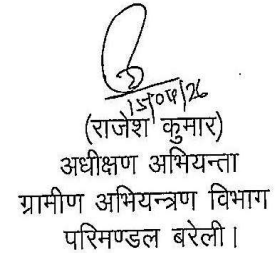 15/04/26
(राजेश कुमार)
अधीक्षण अभियन्ता
ग्रामीण अभियन्त्रण विभाग
परिमण्डल बरेली।